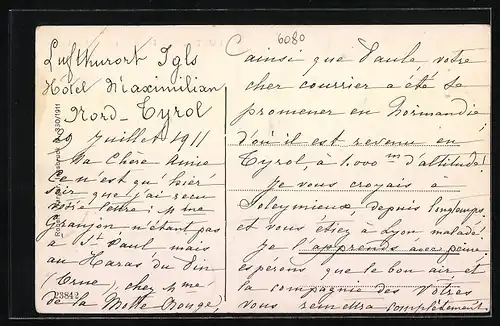 6080
Luftkurort Igls
Hôtel Maximilian
Nord-Tyrol
29 Juillet 1911
Ma Chère Amie
Ce n'est qu'hier
soir que j'ai reçu
votre lettre; Mme
Granjon n'étant pas
à St Paul mais
au Haras du Pin
(Orne), chez Mme
de la Motte Rouge,
ainsi que Paule, votre
cher courrier a été se
promener en Normandie
d'où il est revenu en
Tyrol, à 1.000 m d'altitude!
Je vous croyais à
Soleymieux, depuis longtemps
et vous étiez à Lyon malade.
Je l'apprends avec peine,
espérons que le bon air et
la compagnie des Vôtres
vous remettra complètement.
23842
1911